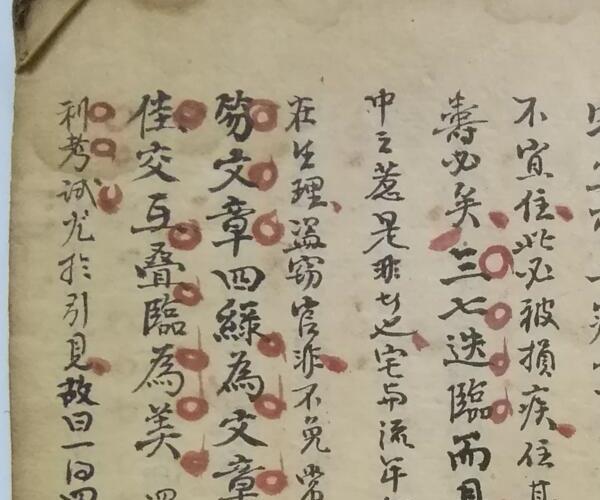 不宜住此必被損疾住
壽必矣三七迭臨而見
中之惹是非也宅與流年
在生理盜竊官非不免常
笏文章四綠為文章
佳交互疊臨為美 四
利考試尤於引見故曰一白四